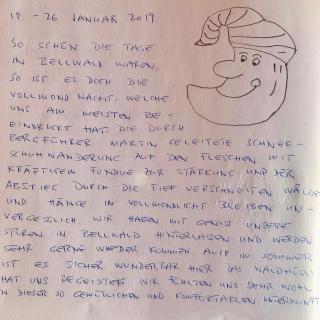 19 - 26 JANUAR 2019
SO SCHÖN DIE TAGE
IN BELLWALD WAREN,
SO IST ES DOCH DIE
VOLLMOND NACHT, WELCHE
UNS AM MEISTEN BE-
EINDRUCKT HAT. DIE DURCH
BERGFÜHRER MARTIN GELEITETE SCHNEE-
SCHUHWANDERUNG AUF DEN FLESCHEN MIT
KRÄFTIGEM FONDUE ZUR STÄRKUNG UND DER
ABSTIEG DURCH DIE TIEF VERSCHNEITEN WÄLDER
UND HÄNGE IM VOLLMONDLICHT BLEIBEN UN-
VERGESSLICH. WIR HABEN MIT GENUSS UNSERE
SPUREN IN BELLWALD HINTERLASSEN UND WERDEN
SEHR GERNE WIEDER KOMMEN AUCH IM SOMMER
IST ES SICHER WUNDERBAR HIER. DAS WALDHÜSLI
HAT UNS BEGEISTERT WIR FÜHLTEN UNS SEHR WOHL
IN DIESER SO GEMÜTLICHEN UND KOMFORTABLEN UNTERKUNFT